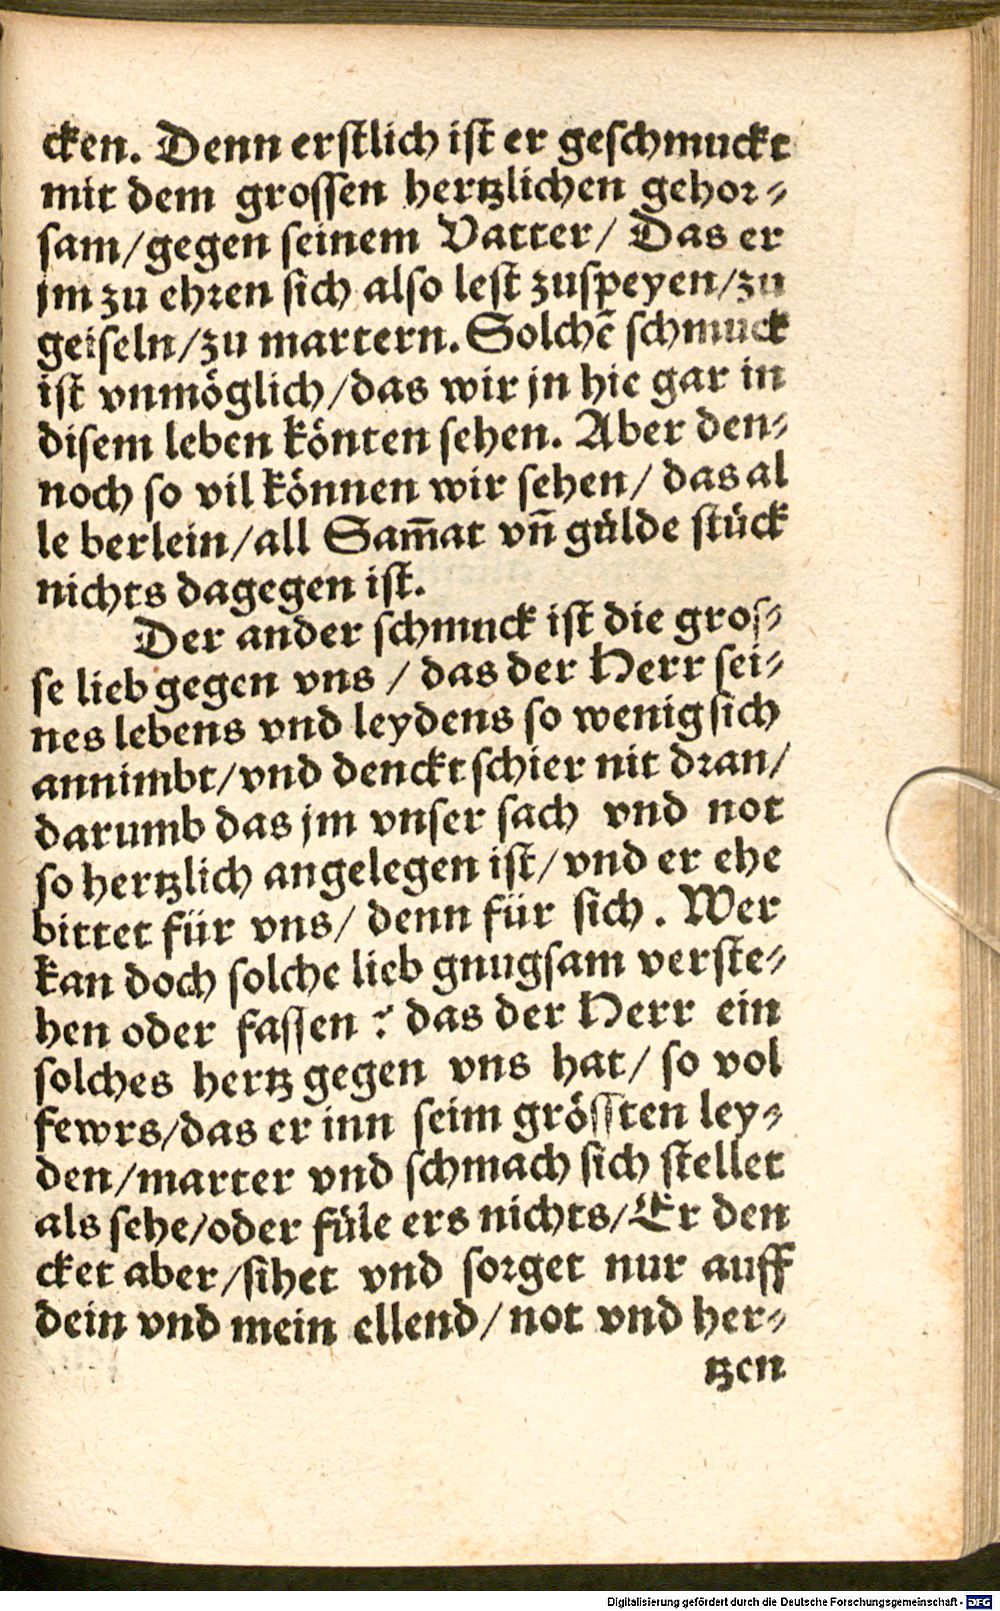 cken. Denn erstlich ist er geschmuckt
mit dem grossen hertzlichen gehor-
sam/gegen seinem Vatter/ Das er
jm zu ehren sich also lest zuspeyen/zu
geiseln/zu martern. Solchē schmuck
ist vnmöglich/das wir jn hie gar in
disem leben könten sehen. Aber den-
noch so vil können wir sehen/ das al
le berlein/all Sam̄at vn̄ gülde stück
nichts dagegen ist.
Der ander schmuck ist die gros-
se lieb gegen vns / das der Herr sei-
nes lebens vnd leydens so wenig sich
annimbt/vnd denckt schier nit dran/
darumb das jm vnser sach vnd not
so hertzlich angelegen ist/vnd er ehe
bittet für vns/ denn für sich. Wer
kan doch solche lieb gnugsam verste-
hen oder fassen? das der Herr ein
solches hertz gegen vns hat/ so vol
fewrs/das er inn seim grössten ley-
den/marter vnd schmach sich stellet
als sehe/oder füle ers nichts/Er den
cket aber/sihet vnd sorget nur auff
dein vnd mein ellend/not vnd her-
tzen
Digitalisierung gefördert durch die Deutsche Forschungsgemeinschaft - DFG